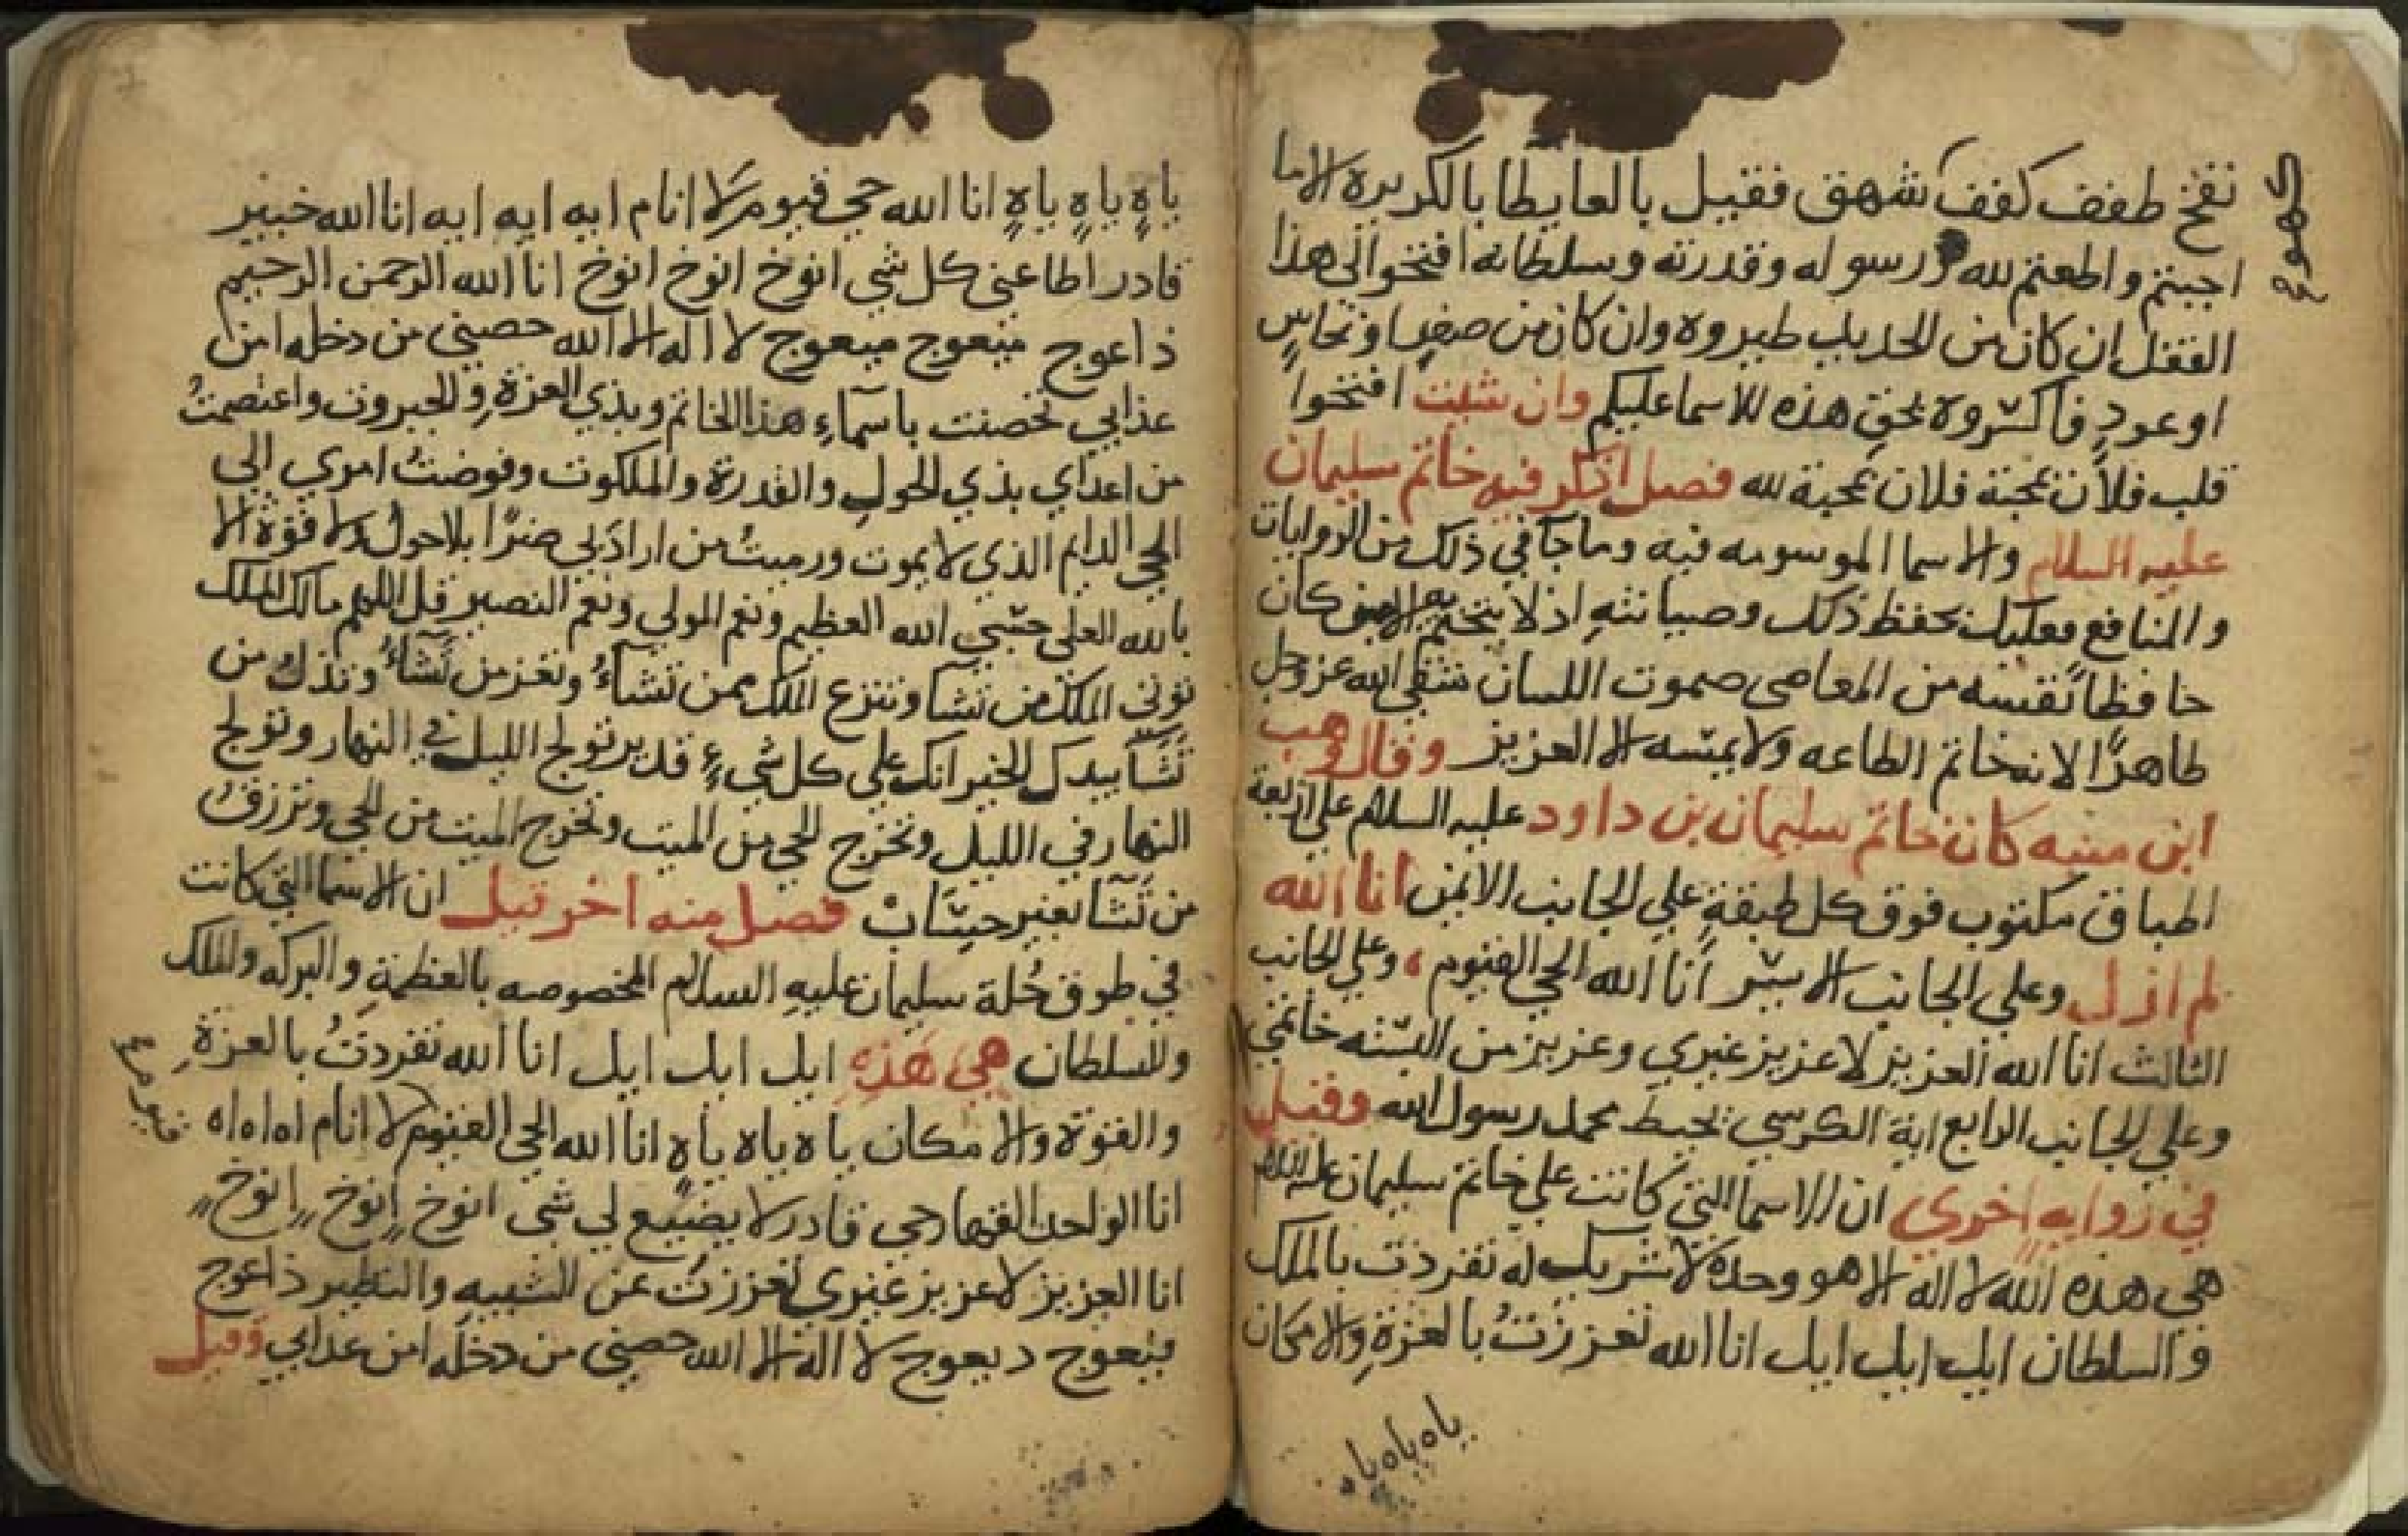 نفخ طفف كفف شهق فقيل بالعايطا بالكريره الا ما
اجبتم واطعتم لله ورسوله وقدرته وسلطانه افتحوا لى هذا
القفل ان كان من الحديد طيروه وان كان من صفر او نحاس
او عود فاكسروه بحق هذه الاسما عليكم وان شيت افتحوا
قلب فلان بمحبة فلان محبة لله فصل اذكر فيه خاتم سليمان
عليه السلام والاسما الموسومه فيه وما جا في ذلك من الروايات
والمنافع فعليك بحفظ ذلك وصيانته اذ لا يتختم به الا من كان
حافظا نفسه من المعاصى صموت اللسان متقى الله عز وجل
طاهرا لانه خاتم الطاعه ولا يمسه الا العزيز وقال وهب
ابن منبه كان خاتم سليمان بن داود عليه السلام على اربعة
اطباق مكتوب فوق كل طبقة على الجانب الايمن انا الله
لم ازل وعلى الجانب الايسر انا الله الحي القيوم وعلى الجانب
الثالث انا الله العزيز لا عزيز غيري وعزيز من البسته خاتمي
وعلى الجانب الرابع اية الكرسي تحيط محمد رسول الله وقيل
في روايه اخري ان الاسما التي كانت على خاتم سليمان عليه السلام
هي هذه الله لا اله الا هو وحده لا شريك له تفردت بالملك
والسلطان ايل ايل ايل انا الله تعززت بالعزة والامكان
ياه ياه ياه
ياه ياه ياه انا الله حي قيوم لا انام ايه ايه ايه ايه انا الله خبير
قادر اطاعني كل شي انوخ انوخ انوخ انا الله الرحمن الرحيم
ذاعوج ميعوج ميعوج لا اله الا الله حصني من دخله امن
عذابي تحصنت باسماء هذا الخاتم وبذي العزة والجبروت واعتصمت
من اعداي بذي الحول والقدرة والملكوت وفوضت امري الى
الحي الدايم الذي لا يموت ورميت من اراد بي ضرا بلا حول ولا قوة الا
بالله العلى حسبي الله العظيم ونعم المولي ونعم النصير قل اللهم مالك الملك
توتي الملك من تشا وتنزع الملك ممن تشاء وتعز من تشاء وتذل من
تشا بيدك الخير انك علي كل شيء قدير تولج الليل في النهار وتولج
النهار في الليل وتخرج الحي من الميت وتخرج الميت من الحي وترزق
من تشا بغير حساب فصل منه اخر قيل ان الاسما التي كانت
في طوق حلة سليمان عليه السلام المخصوصه بالعظمة والبركه والملك
والسلطان هي هذه ايل ايل ايل انا الله تفردت بالعزة
والقوة والامكان ياه ياه ياه انا الله الحي القيوم لا انام اه اه اه
انا الواحد القهار حي قادر لا يضيع لي شي انوخ انوخ انوخ
انا العزيز لا عزيز غيري تعززت عن الشبيه والنظير ذاعوج
ميعوج ديعوج لا اله الا الله حصني من دخله امن عذابي وقيل